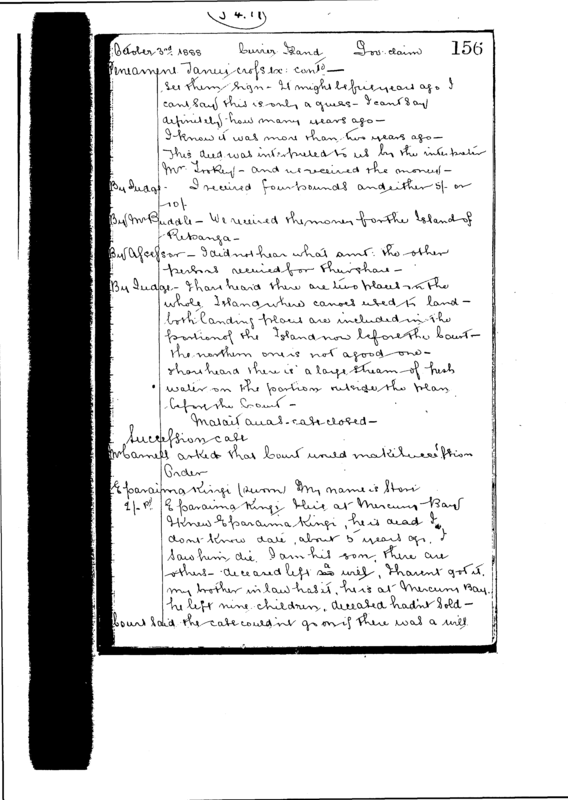 October 3rd 1888 Cuvier Island Gov: claim 156
Tanui cross ex: contd —
see them sign — It might be five years ago I
cant say this is only a guess — I cant say
definitely how many years ago —
I know it was more than two years ago —
This deed was interpreted to us by the interpreter
Mr. — and we received the money —
By Judge — I received four pounds and either 5/- or
10/-
By Mr Buddle — We received the money for the Island of
Repanga —
By Assessor — I did not hear what amt: the other
persons received for their share —
By Judge — I have heard there are two places on the
whole Island where canoes used to land —
both landing places are included in the
portion of the Island now before the Court —
the northern one is not a good one —
I have heard there is a large stream of fresh
water on the portion outside the plan
before the Court —
case closed —
Succession case
Mr asked that Court would make Succession
Order
Eparaima Kingi sworn My name is
2/- pd Eparaima Kingi I live at Mercury Bay
I knew Eparaima Kingi, he is dead I
dont know date, about 5 years ago, I
saw him die. I am his son, there are
others — deceased left a will, I havent got it.
my brother in law has it, he is at Mercury Bay.
he left nine children, deceased hadnt sold —
Court said the case couldnt go on if there was a will